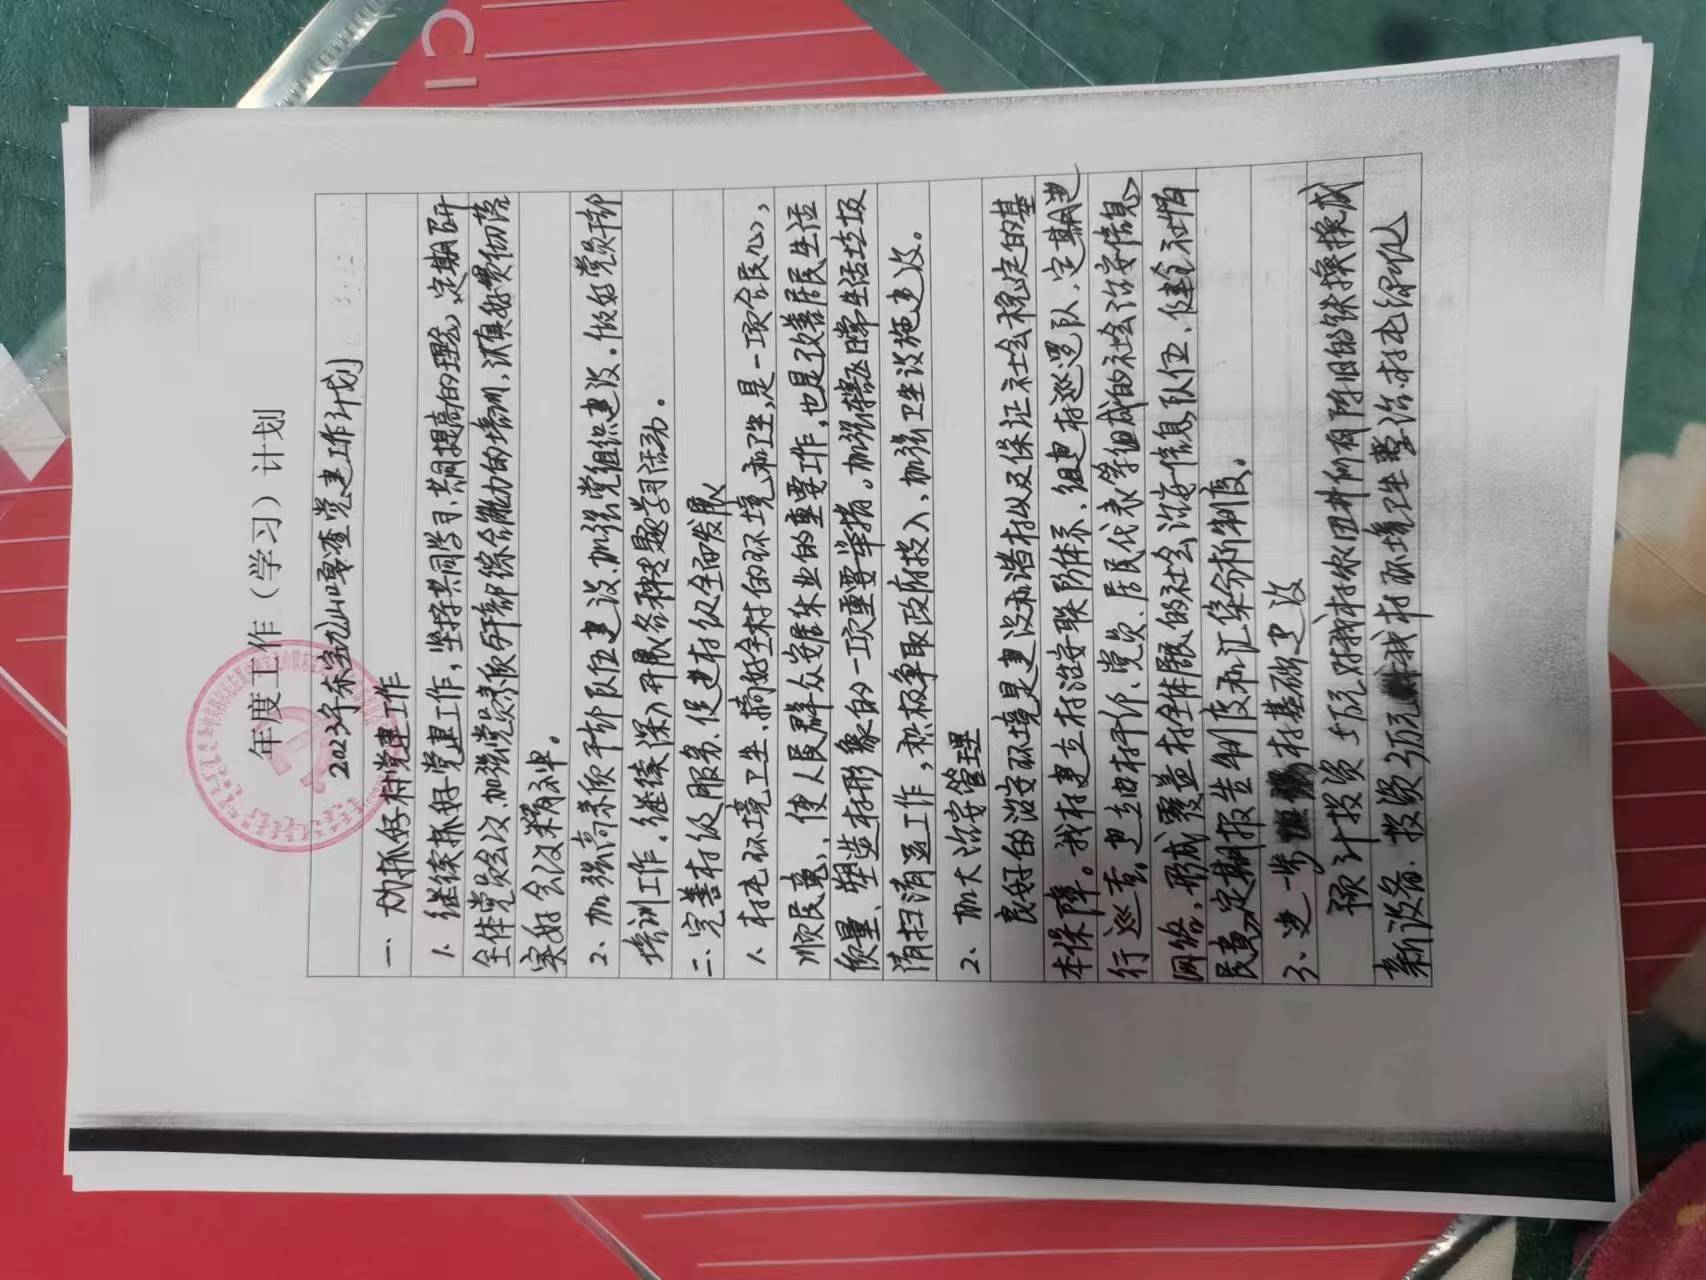 年度工作（学习）计划
2023年东宝九山嘎查党建工作计划
一、力抓好村党建工作
1、继续抓好党建工作，坚持共同学习、共同提高的理念，定期召开
全体党员会议、加强党员素质和干部综合能力的培训，认真好贯彻落
实好会议精神。
2、加强高素质干部队伍建设、加强党组织建设。做好党员干部
培训工作。继续深入开展各种专题学习活动。
二、完善村级服务、促进村级全面发展
1、村屯环境卫生、搞好全村的环境和卫生，是一项合民心，
顺民意、使人民群众安居乐业的重要工作，也是改善居民生活
质量、塑造村形象的一项重要举措。加强辖区日常生活垃圾
清扫清运工作，积极争取政府投入，加强卫生设施建设。
2、加大治安管理
良好的治安环境是建设和谐村以及保证社会稳定的基
本保障。我村建立村治安联防体系、组建村巡逻队、定期进
行巡查，建立由村干部、党员、居民代表等组成的社会治安信息
网络，形成覆盖村全体居民的社会治安信息队伍、健全社情
民意定期报告制度和汇集分析制度。
3、进一步 村基础建设
预计投资5万元对我村农田井所有陈旧的铁换换成
新设备．投资3万元 我村环境卫生整治、村屯绿化
CI